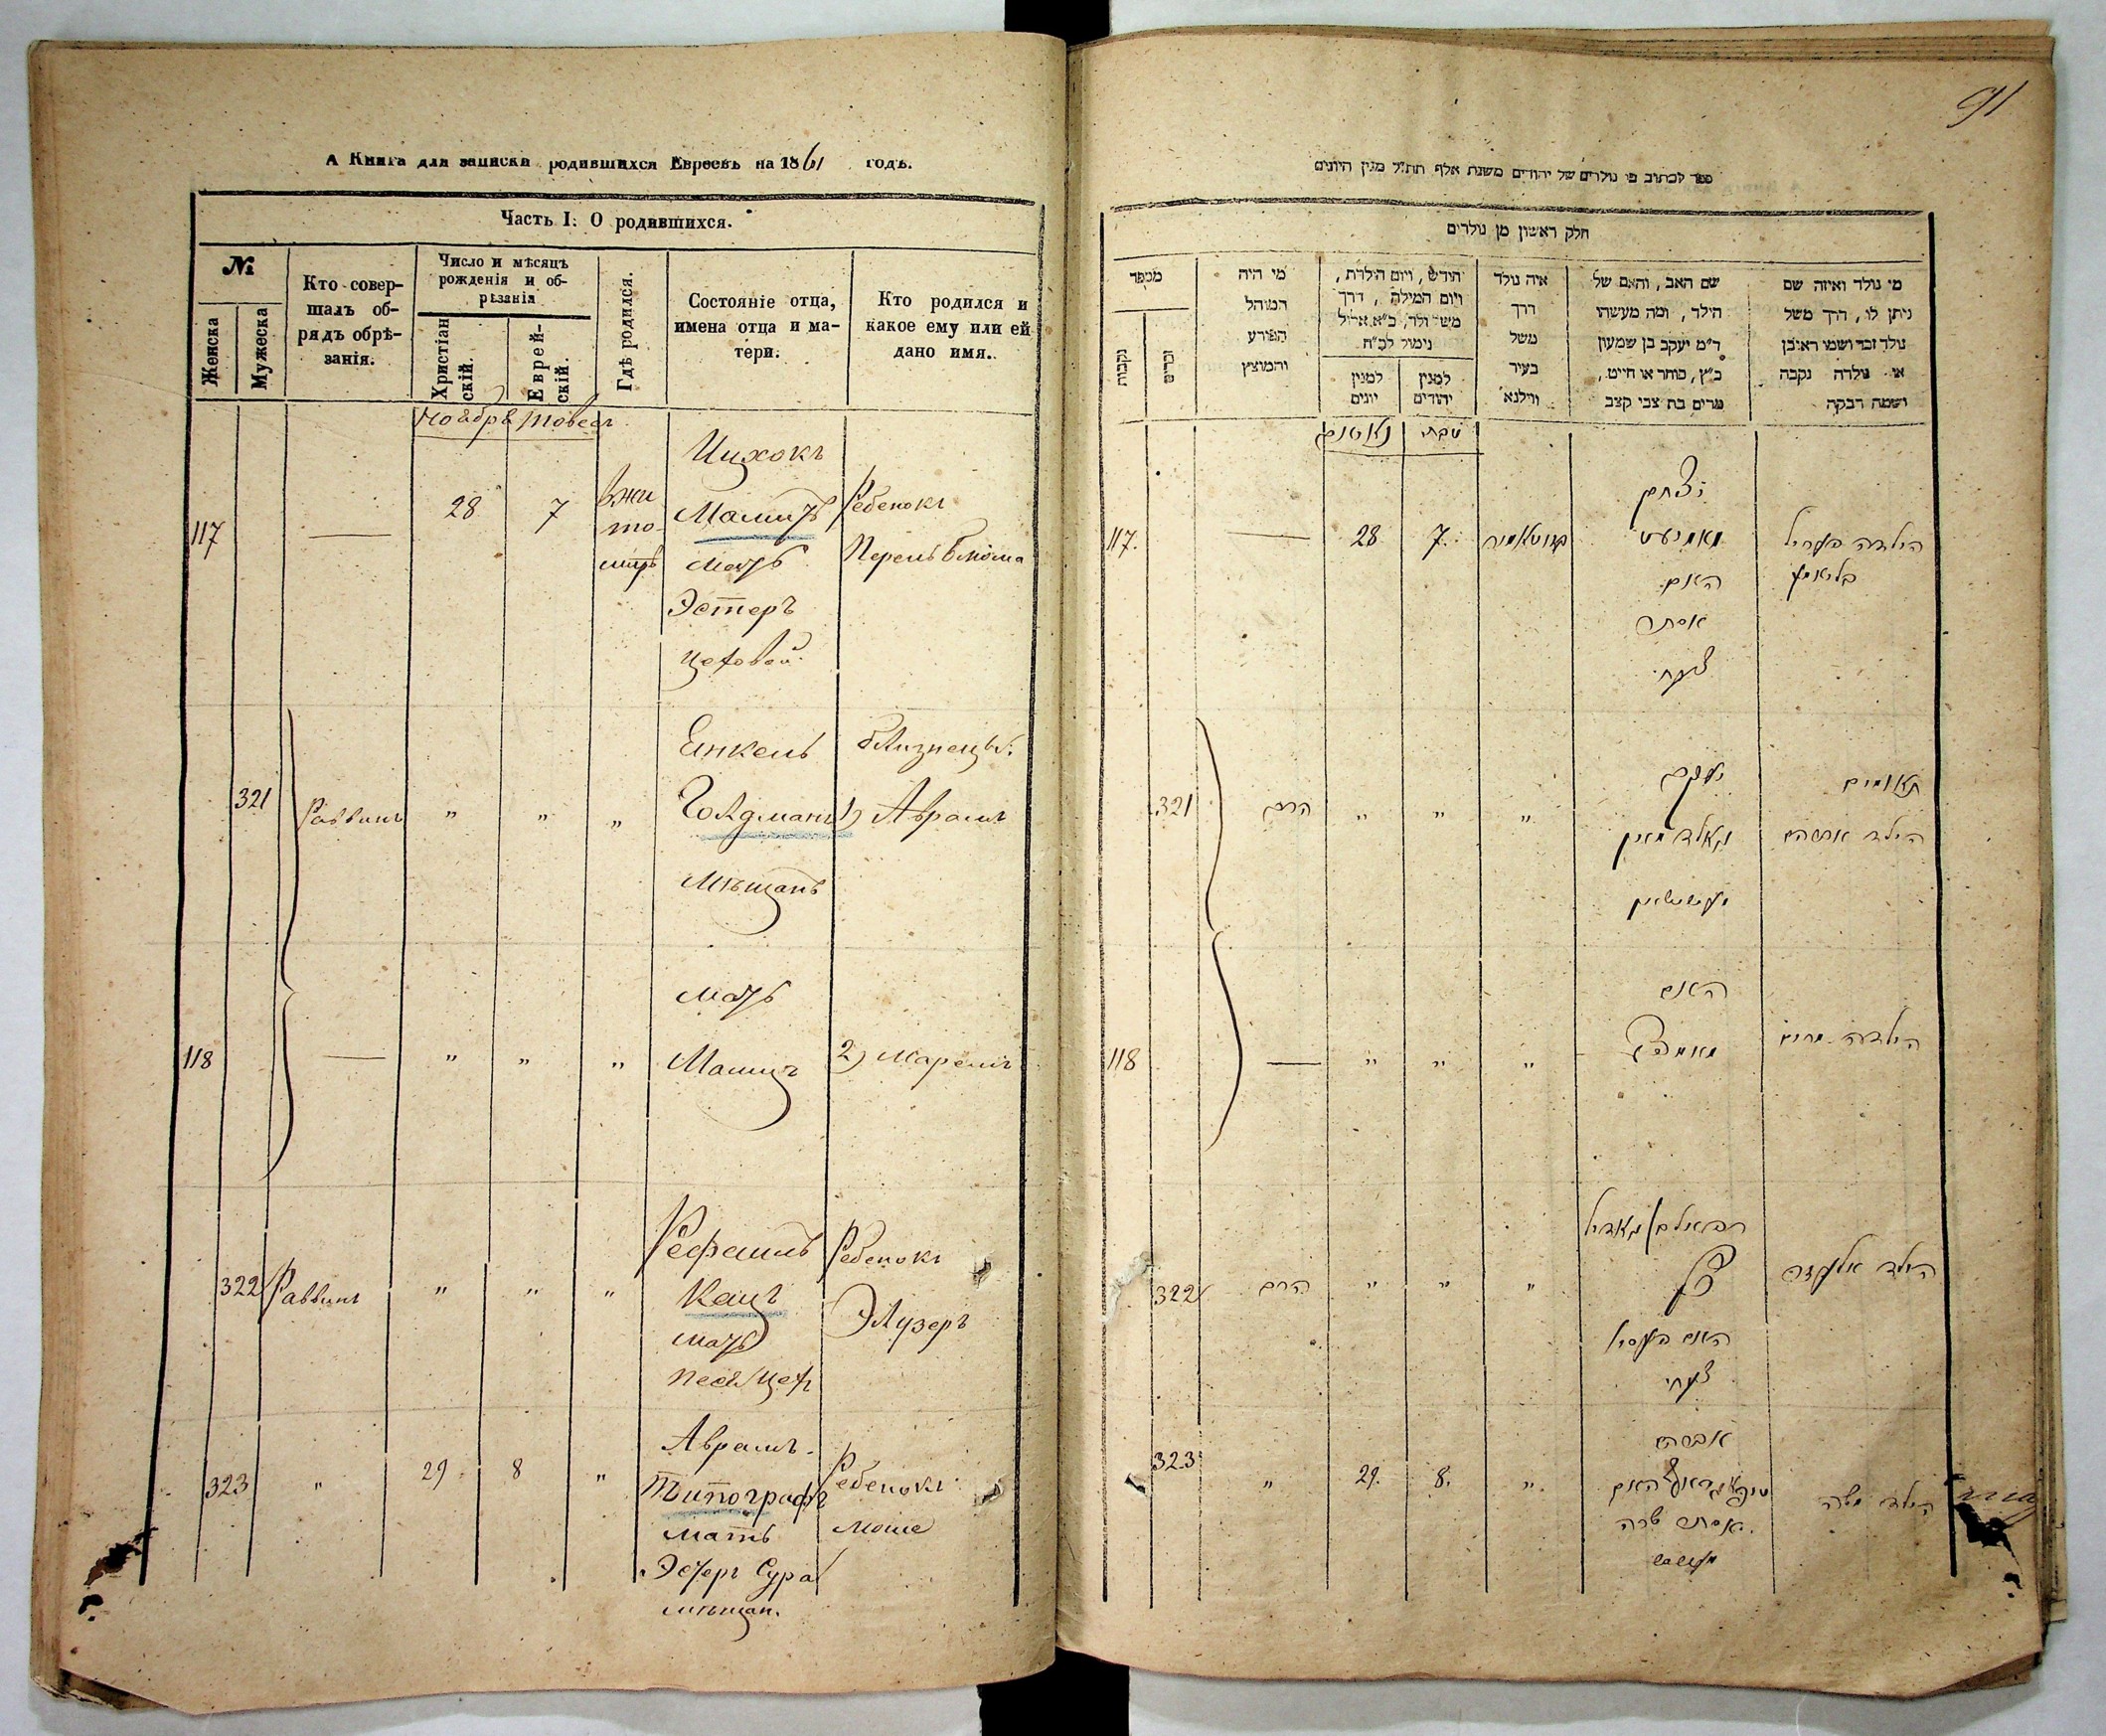 А Книга для записки родившихся Евреевъ на 1861 годъ.
Часть I. О родившихся.
№
Женска
Мужеска
Кто совер-
шалъ об-
рядъ обрѣ-
занія.
Число и мѣсяцъ
рожденія и об-
рѣзанія
Христіан
скій.
Еврей-
скій.
Гдѣ родился.
Состояніе отца,
имена отца и ма-
тери.
Кто родился и
какое ему или ей
дано имя.
Ноабрь Товесъ
117
—
28
7
въ Жи
то-
миръ
Ицхокъ
мать
Эстеръ
цеховой.
Ребенокъ
Перель Блюма
321
Раввинъ
„
„
„
Енкель
Голдманъ
мѣщанъ
близнецы:
1) Аврамъ
118
—
„
„
„
мать
2) Маремъ
322
Раввинъ
„
„
„
Рефаилъ
Кацъ
мать
Песя цех
Ребенокъ
Элузеръ
323
„
29
8
„
Аврамъ.
Типографъ
мать
Эстеръ Сура
мѣщан.
Ребенокъ
Моше
91
ספר לכתוב בו נולדים של יהודים משנת אלף תת״ל מנין היונים
חלק ראשון מן נולדים
מספר
נקבות
זכרים
מי היה
המוהל
הפורע
והמוצץ
חודש, ויום הולדת,
ויום המילה, דרך
משל ולד, כ״א אריל
נימול לכ״ח
למנין
יונים
למנין
יהודים
איה נולד
דרך
משל
בעיר
ווילנא
שם האב, והאם של
הילד, ומה מעשהו
ד״מ יעקב בן שמעון
כ״ץ, סוחר או חייט,
מרים בת צבי קצב
מי נולד ואיזה שם
ניתן לו, דרך משל
נולד זכר ושמו ראובן
או נולדה נקבה
ושמה רבקה
טבת
117.
—
28
7.
יצחק
האם
אסתר
צעחי
הילדה פעריל
בליומע
321
הרב
„
„
„
יעקב
גאלדמאן
תאומים
הילד אברהם
118
—
„
„
„
האם
הילדה מרים
322
הרב
„
„
„
כץ
האם פעסיל
צעחי
הילד אלעזר
323
„
29.
8.
„
אברהם
האם
אסתר שרה
הילד משה